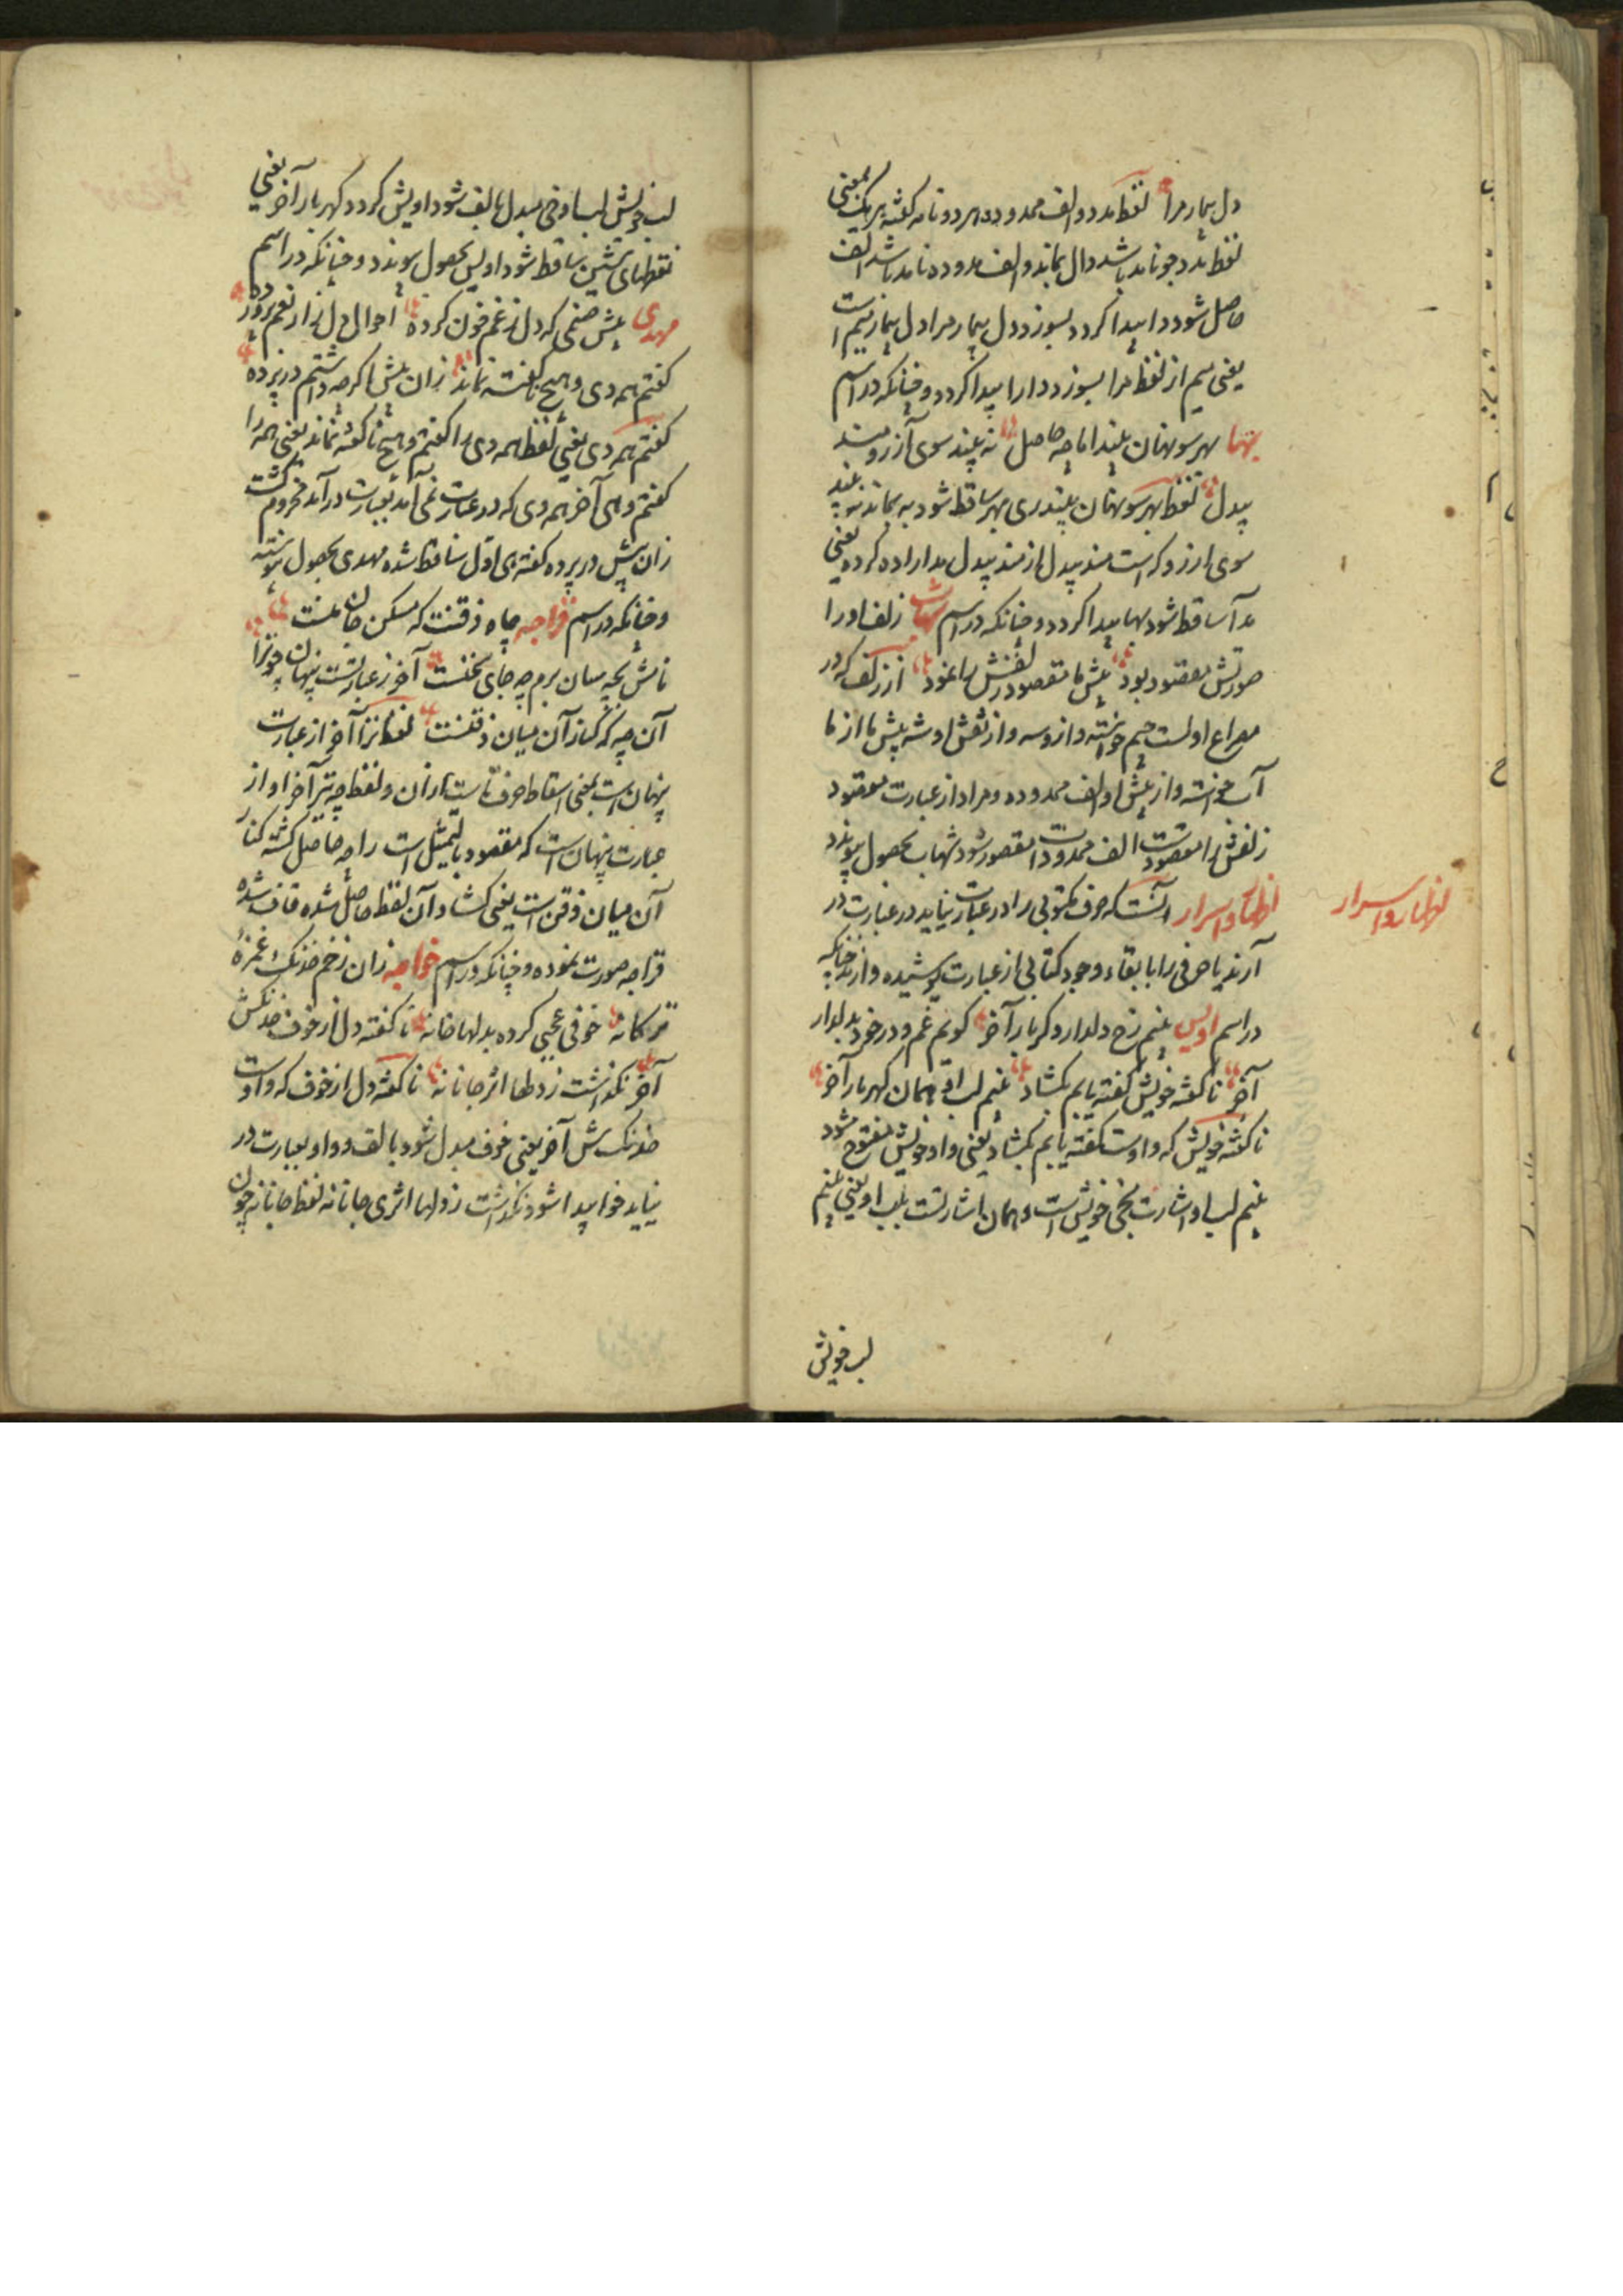 دل بیمار مرا لفظ مد دو الف ممدوده هر دو نام کفته هر یک بمعنی
لفظ مد چو نامد باشد دال بماند و الف مدوده نامد باشد الف
حاصل شود دا پیدا کردد بسوزد دل بیمار مرا دل بیمار میم است
یعنی میم از لفظ مرا بسوزد دارا پیدا کردد و چنانکه در اسم
بها بهر سو بتان بیند اما چه حاصل نه بیند سوی آرزومند
بیدل لفظ بهر سو بتان بیند ری بهر ساقط شود به بماند نه بیند
سوی ارزو که است مند بیدل از مند بیدل مد اراده کرده یعنی
مد آ ساقط شود بها پیدا کردد و چنانکه در اسم شهاب زلف او را
صورتش مقصود بود پیش ما مقصود زلفش را نمود از زلف که در
مصراع اولست جیم خواسته و از و سه و از نقش او شه پیش ما از ما
آب خواسته و از پیش او الف ممدوده و مراد از عبارت مقصود
زلفش را مقصودست الف ممدودات مقصور شود شهاب بحصول پیوندد
اظهار و اسرار آنست که حرف مکتوبی را در عبارت نیاید در عبارت در
اظهار و اسرار
آرند یا حرفی را با بقاء وجود کتابی از عبارت پوشیده دارند چنانکه
در اسم اویس بینم رخ دلدار و کر بار آخر کویم غم و درد خود بدلدار
آخر ناکفته خویش کفته یابم بکشاد بینم لب او همان کهربار آخر
ناکفته خویش که واوست کفته یابم بکشاد یعنی واو خویش مفتوح شود
بینم لب او اشارت بخی خویش است و همان اشارتست بلب او یعنی بینم
لب خویش
لب خویش لب او خی مبدل بالف شود اویش کردد کهربار آخر یعنی
نقطهای شین ساقط شود اویس بحصول پیوندد و چنانکه در اسم
مهدی پیش صنمی که دل ز غم خون کرده احوال دل زار نعم پرورده
کفتم همه دی و هیچ ناکفته نماند زان پیش اکر چه داشتم در پرده
کفتم همه دی یعنی لفظ همه دی را کفتم و هیچ ناکفته نماند یعنی همه را
کفتم و هی آخر همه دی که در عبارت نمی آمد بعبارت در آمد
زان پیش در پرده کفته هی اول ساقط شده مهدی بحصول پیوسته
و چنانکه در اسم قراجه چاه ذقنت که مسکن جان منست
نامش بچه سان برم چه جای سخنست آخر ز عبارتست پنهان چو ترا
آن چه که کنار آن میان ذقنست لفظ ترا آخر از عبارت
پنهان است یعنی اسقاط حرف تاست از آن و لفظ چه نیز آخر او از
عبارت پنهان است که مقصود بالتمثیل است راجه حاصل کشته کنار
آن میان ذقن است یعنی کشاد آن لفظ حاصل شده قاف شده
قراجه صورت نموده و چنانکه در اسم خواجه زان زخم خدنک غمزه
ترکانه خوفی عجبی کرده بدلها خانه ناکفته دل از خوف خدنکش
آخر نکذاشت ز دلها اثر جانانه ناکفته دل از خوف که واوست
خدنک ش آخر یعنی خوف مبدل شود بالف و واو بعبارت در
نیاید خوا پیدا شود نکذاشت ز دلها اثری جانانه لفظ جانانه چون